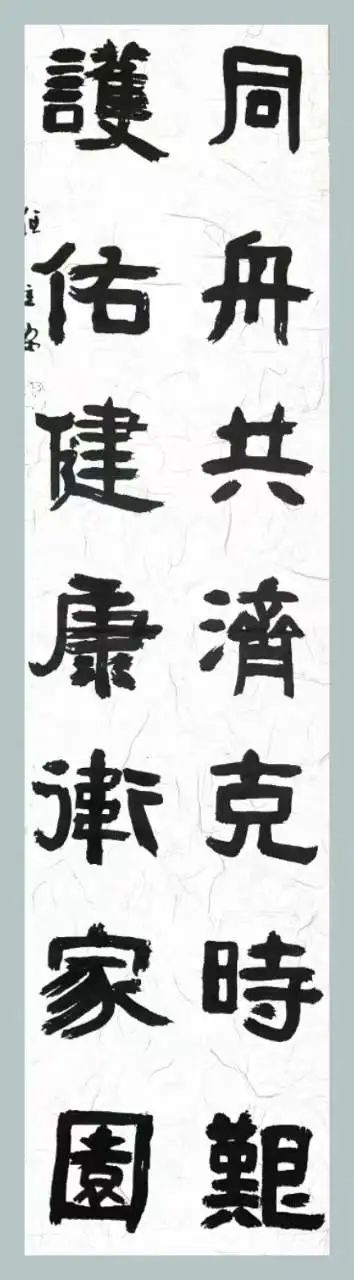 同舟共濟克時艱
護佑健康衛家園